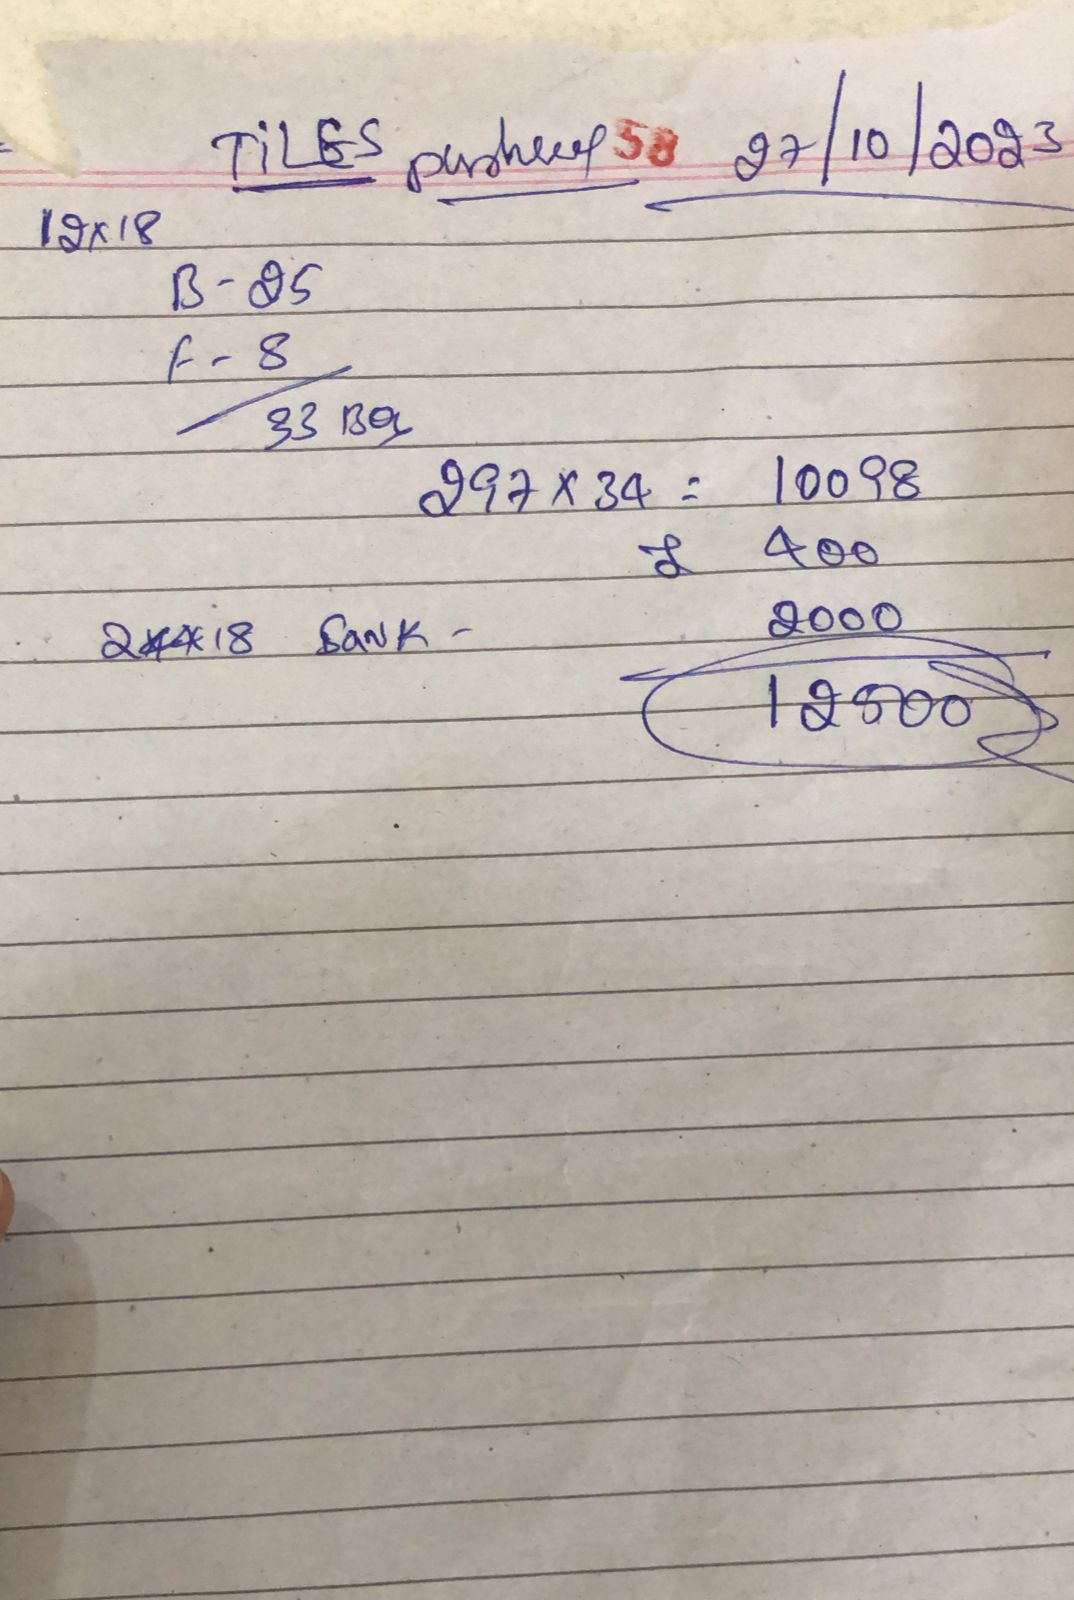 TiLES 58 27/10/2023
12x18
B - 25
F - 8
33 Box
297 x 34 = 10098
L 400
18 SanK - 2000
12500